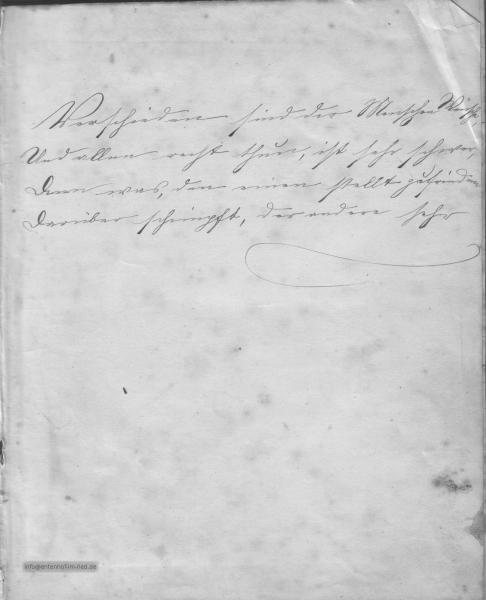 Verschieden sind der Menschen
Und allen recht thun, ist sehr schwer,
Denn was, den einen stellt zufrieden
Darüber schimpft, der andere sehr
info@entennofilm-neo.de